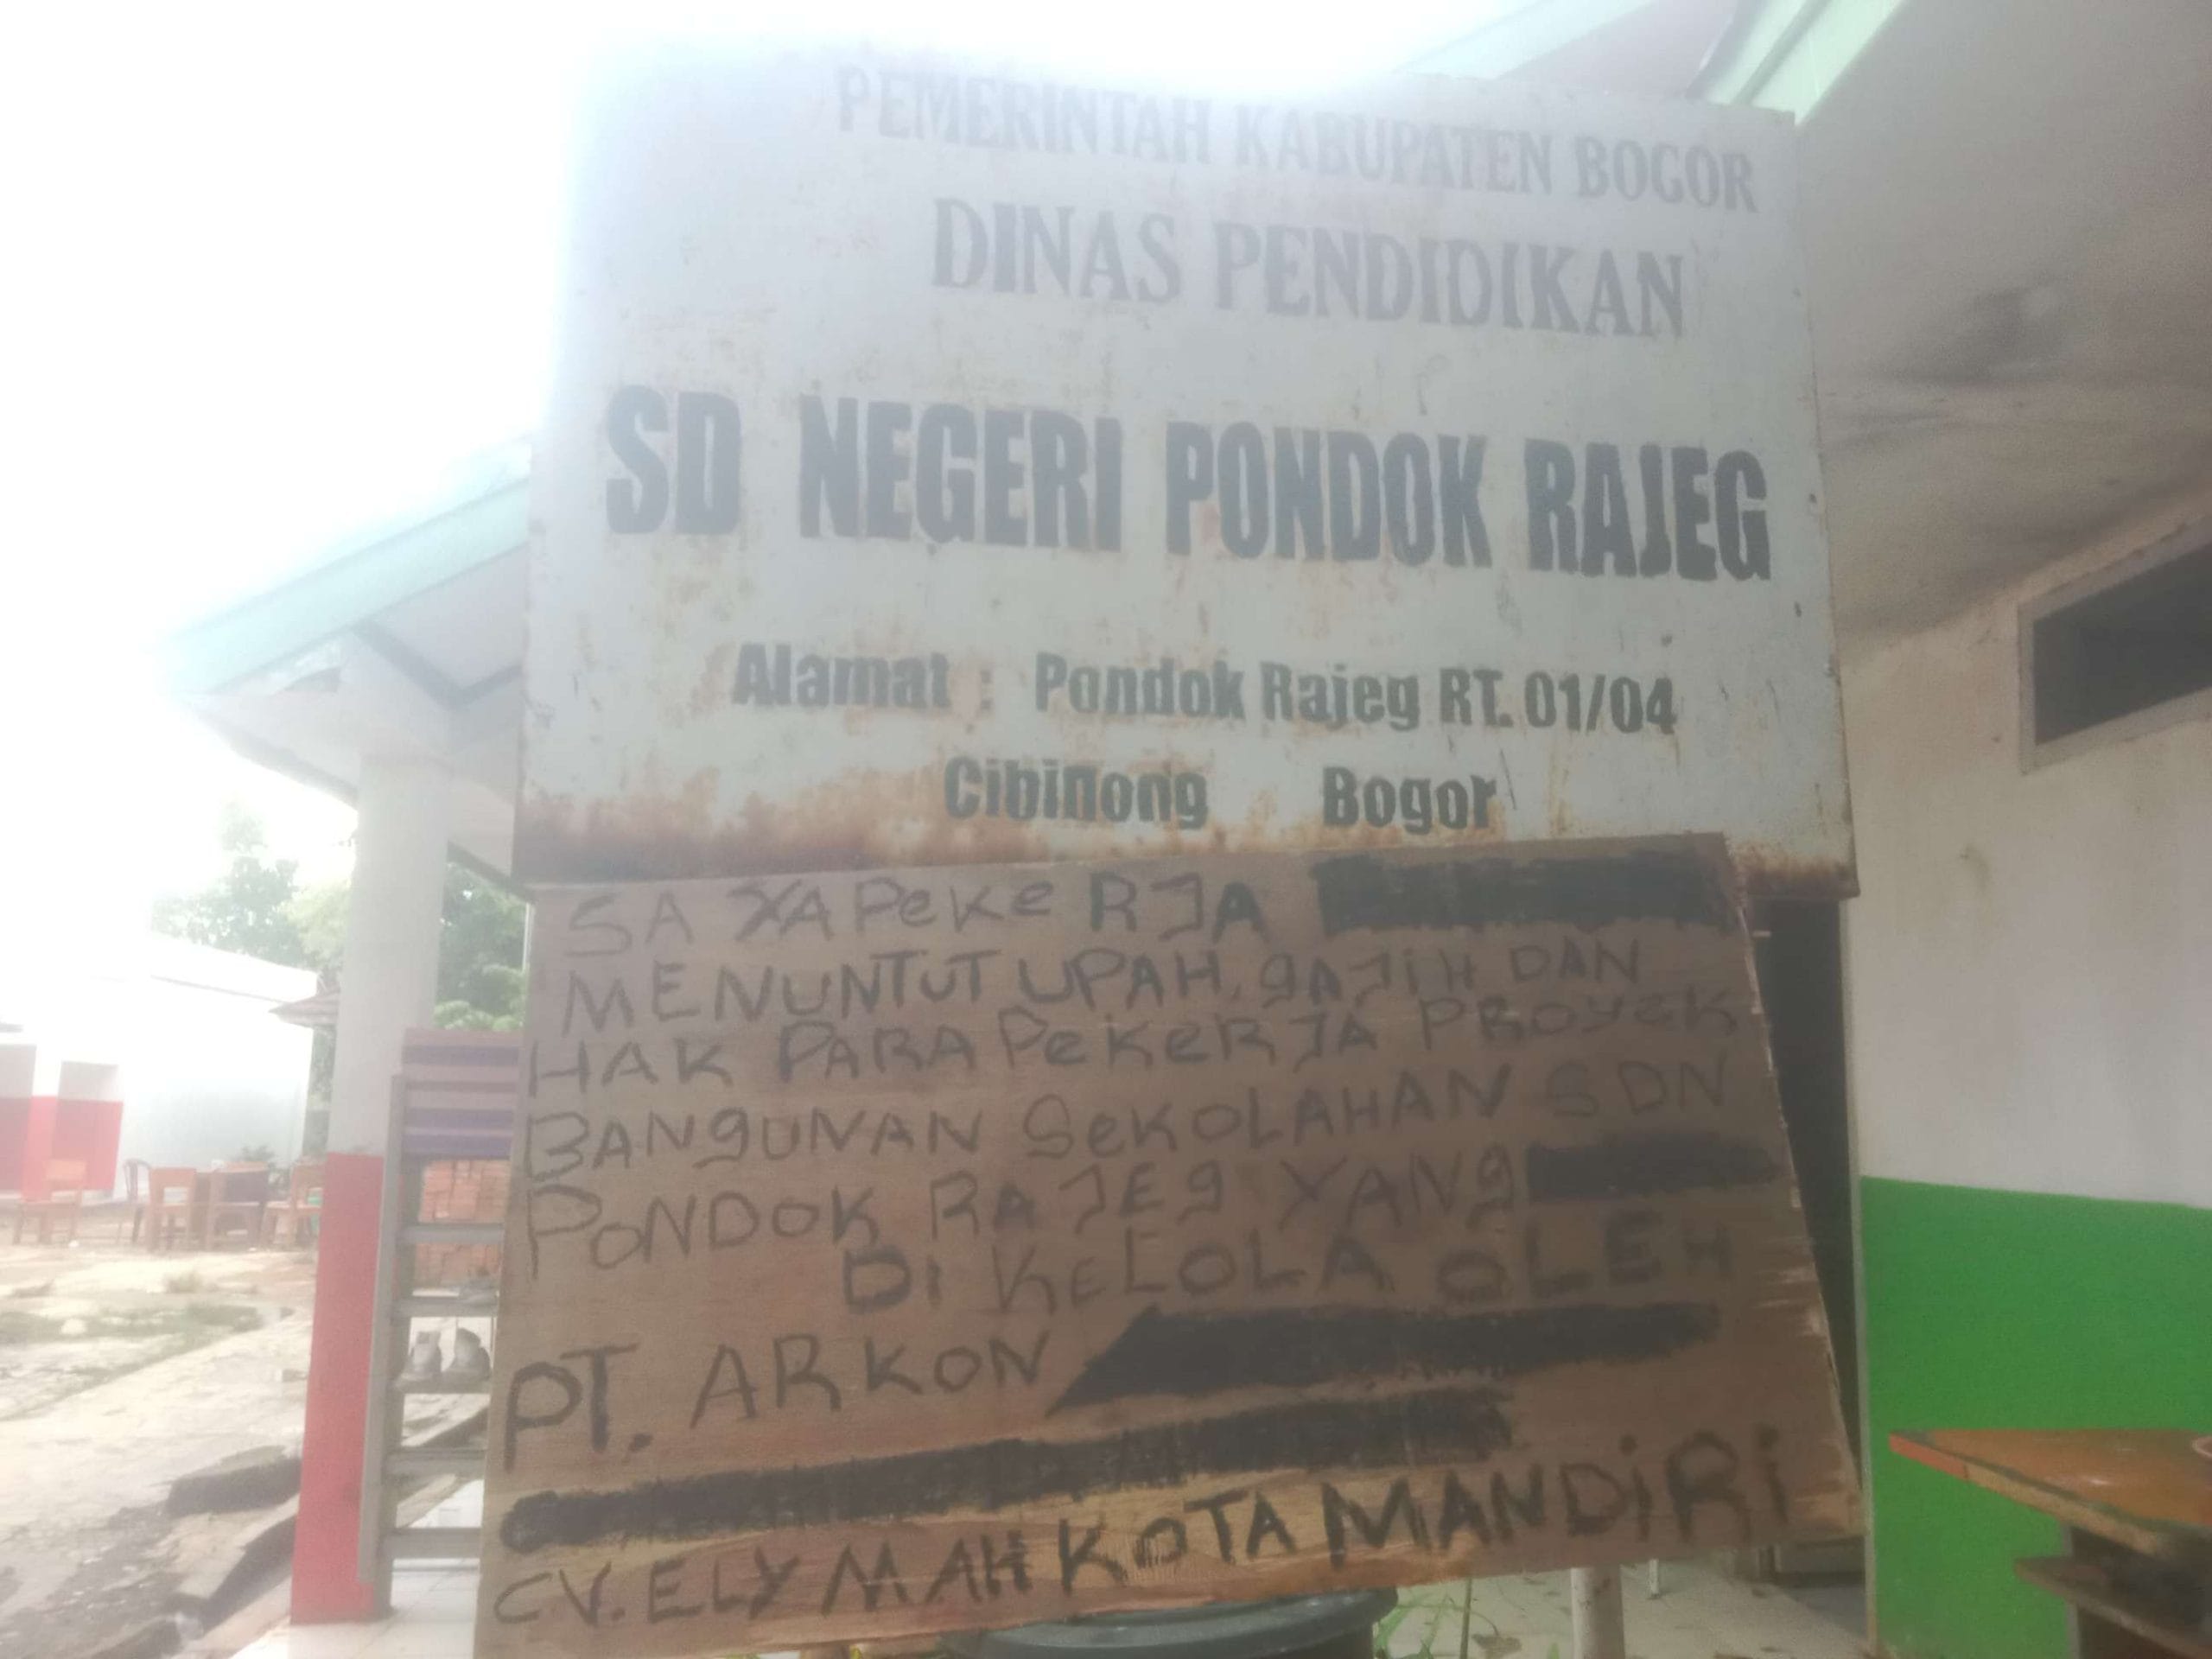 PEMERINTAH KABUPATEN BOGOR
DINAS PENDIDIKAN
SD NEGERI PONDOK RAJEG
Alamat : Pondok Rajeg RT. 01/04
Cibinong Bogor
SAYA PeKeRJA
MENUNTUT UPAH, gAJiH DAN
HAK PARA PeKeRJA PROYeK
BANgUNAN SeKOLAHAN SDN
PONDOK RAJEg YANg
Di KeLOLA OLEH
PT. ARKON
CV. ELY MAHKOTA MANDiRi